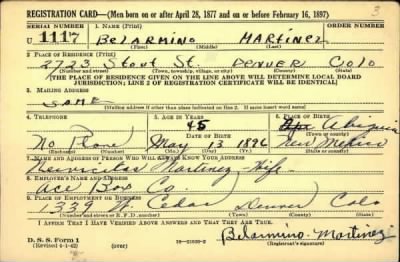 REGISTRATION CARD—(Men born on or after April 28, 1877 and on or before February 16, 1897)
3
SERIAL NUMBER 1. NAME (Print) ORDER NUMBER
U 1117 BELARMINO MARTINEZ
(First) (Middle) (Last)
2. PLACE OF RESIDENCE (Print)
2723 Stout St. DENVER COLO
(Number and street) (Town, township, village, or city) (County) (State)
[THE PLACE OF RESIDENCE GIVEN ON THE LINE ABOVE WILL DETERMINE LOCAL BOARD
JURISDICTION; LINE 2 OF REGISTRATION CERTIFICATE WILL BE IDENTICAL]
3. MAILING ADDRESS
SAME
[Mailing address if other than place indicated on line 2. If same insert word same]
4. TELEPHONE 5. AGE IN YEARS 6. PLACE OF BIRTH
45
DATE OF BIRTH (Town or county)
No Phone May 13 1896 New Mexico
(Exchange) (Number) (Mo.) (Day) (Yr.) (State or country)
7. NAME AND ADDRESS OF PERSON WHO WILL ALWAYS KNOW YOUR ADDRESS
Martinez - Wife -
8. EMPLOYER'S NAME AND ADDRESS
Ace Box Co.
9. PLACE OF EMPLOYMENT OR BUSINESS
1339 W. Cedar Denver Colo
(Number and street or R. F. D. number) (Town) (County) (State)
I AFFIRM THAT I HAVE VERIFIED ABOVE ANSWERS AND THAT THEY ARE TRUE.
D. S. S. Form 1 Belarmino Martinez
(Revised 4-1-42) (over) (Registrant's signature)